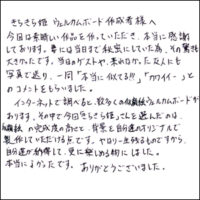 きらきら姫 ウェルカムボード作成者様へ
今回は素晴しい作品を作っていただき、本当に感謝
しております。妻には当日まで秘密にしていた為、その驚きも
大きかったです。当日のゲストや、来れなかった友人にも
写真で送り、一同「本当に似てる!!」「カワイイー」と
のコメントをもらいました。
インターネットで調べると、数多くの似顔絵ウェルカムボードが
あります。その中で今回きらきら姫さんを選んだのは、
似顔絵の完成度の高さと、背景と自分達のオリジナルで
製作していただける点です。やはり一生残るものですから、
自分達が納得して、更に楽しめる物にしました。
本当によかったです。ありがとうございました。